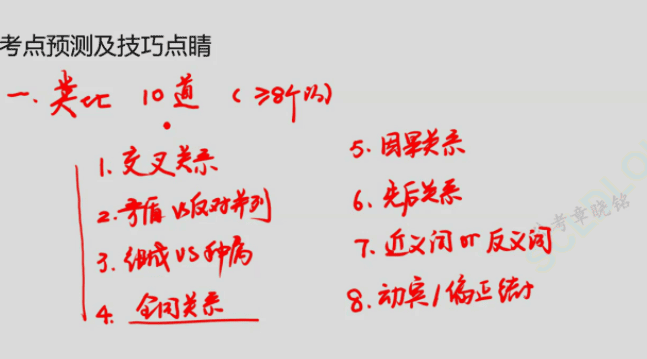 考点预测及技巧点睛
一. 类比 10道 (≥8个的)
1. 交叉关系
2. 矛盾 vs 反对并列
3. 组成 vs 种属
4. 全同关系
5. 因果关系
6. 先后关系
7. 近义词 or 反义词
8. 动宾/偏正结构
考章晓铭